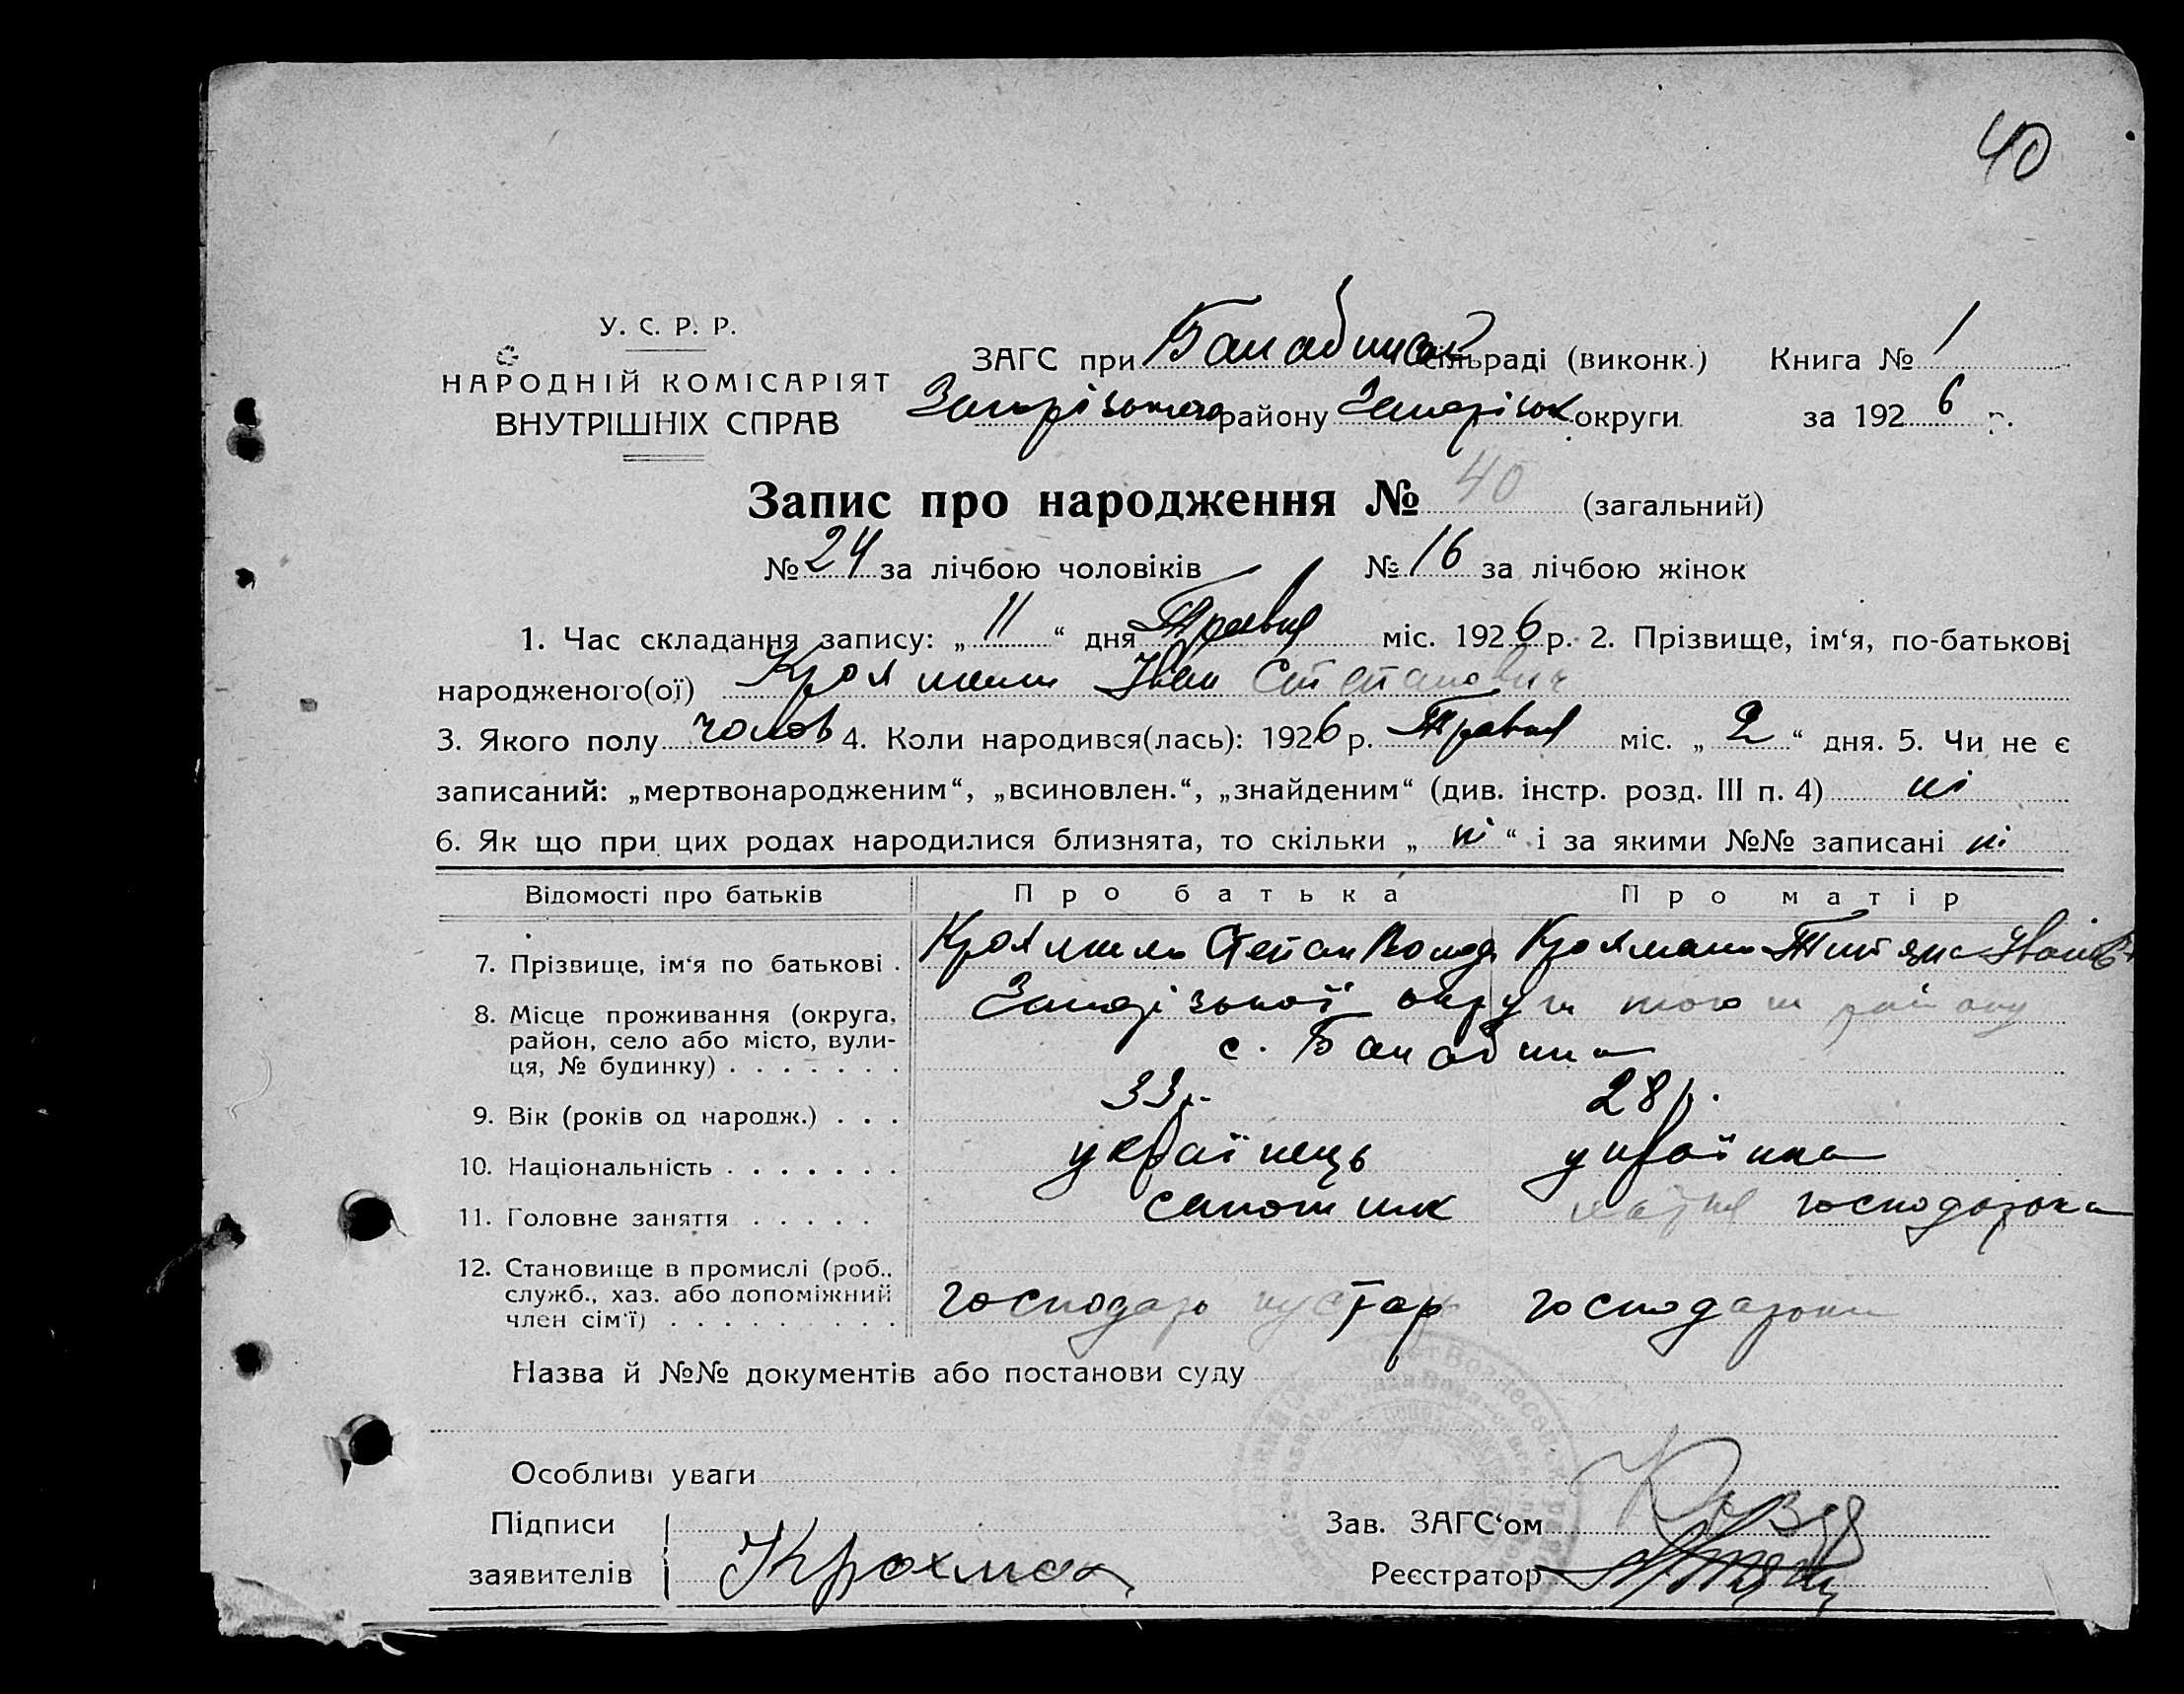 40
У. С. Р. Р.
НАРОДНІЙ КОМІСАРІЯТ
ВНУТРІШНІХ СПРАВ
ЗАГС при сільраді (виконк.) Книга № 1
району округи за 1926 г.
Запис про народження № 40 (загальний)
№ 24 за лічбою чоловіків № 16 за лічбою жінок
1. Час складання запису: „11“ дня Травня міс. 1926 р. 2. Прізвище, ім‘я, по-батькові
народженого(ої) Іван Степанович
3. Якого полу чолов 4. Коли народився(лась): 1926 р. Травня міс. „2“ дня. 5. Чи не є
записаний: „мертвонародженим“, „всиновлен.“, „знайденим“ (див. інстр. розд. III п. 4) ні
6. Як що при цих родах народилися близнята, то скільки „ні“ і за якими №№ записані ні
Відомості про батьків Про батька Про матір
7. Прізвище, ім‘я по батькові . Степан
8. Місце проживання (округа, округи району
район, село або місто, вули- с.
ця, № будинку) . . . . . . .
9. Вік (років од народж.) . . . 33 р. 28 р.
10. Національність . . . . . . . українець українка
11. Головне заняття . . . . . господарка
12. Становище в промислі (роб..
служб., хаз. або допоміжний господарь кустарь
член сім‘ї) . . . . . . . . .
Назва й №№ документів або постанови суду
Особливі уваги
Підписи Зав. ЗАГС‘ом
заявителів Крохмаль Реєстратор